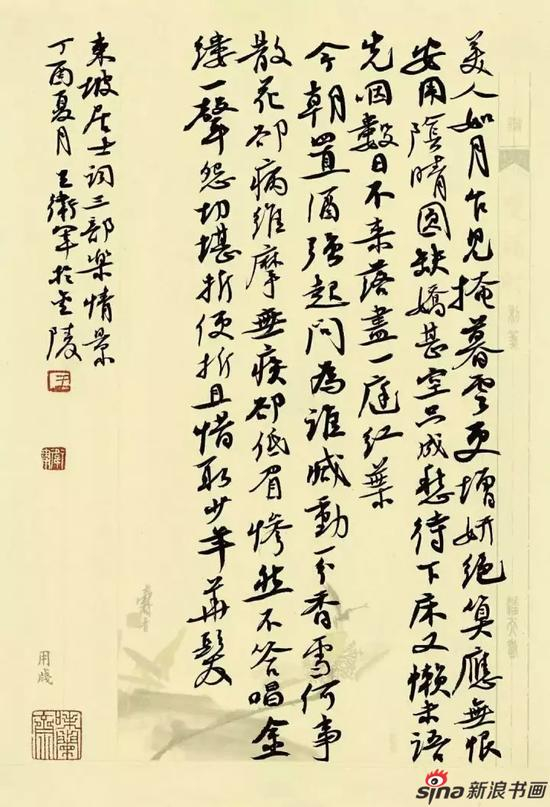 美人如月乍见掩暮雲更增妍绝算應無恨
安用陰晴圆缺嬌甚空只成愁待下床又懒未語
先咽數日不来落盡一庭红葉
今朝置酒强起問為誰减動一分香雪何事
散花卻病維摩無疾卻低眉惨然不答唱金
缕一聲怨切堪折便折且惜取少年華髮
東坡居士词三部樂情景
丁酉夏月王衛軍於金陵
用牋
sina新浪书画